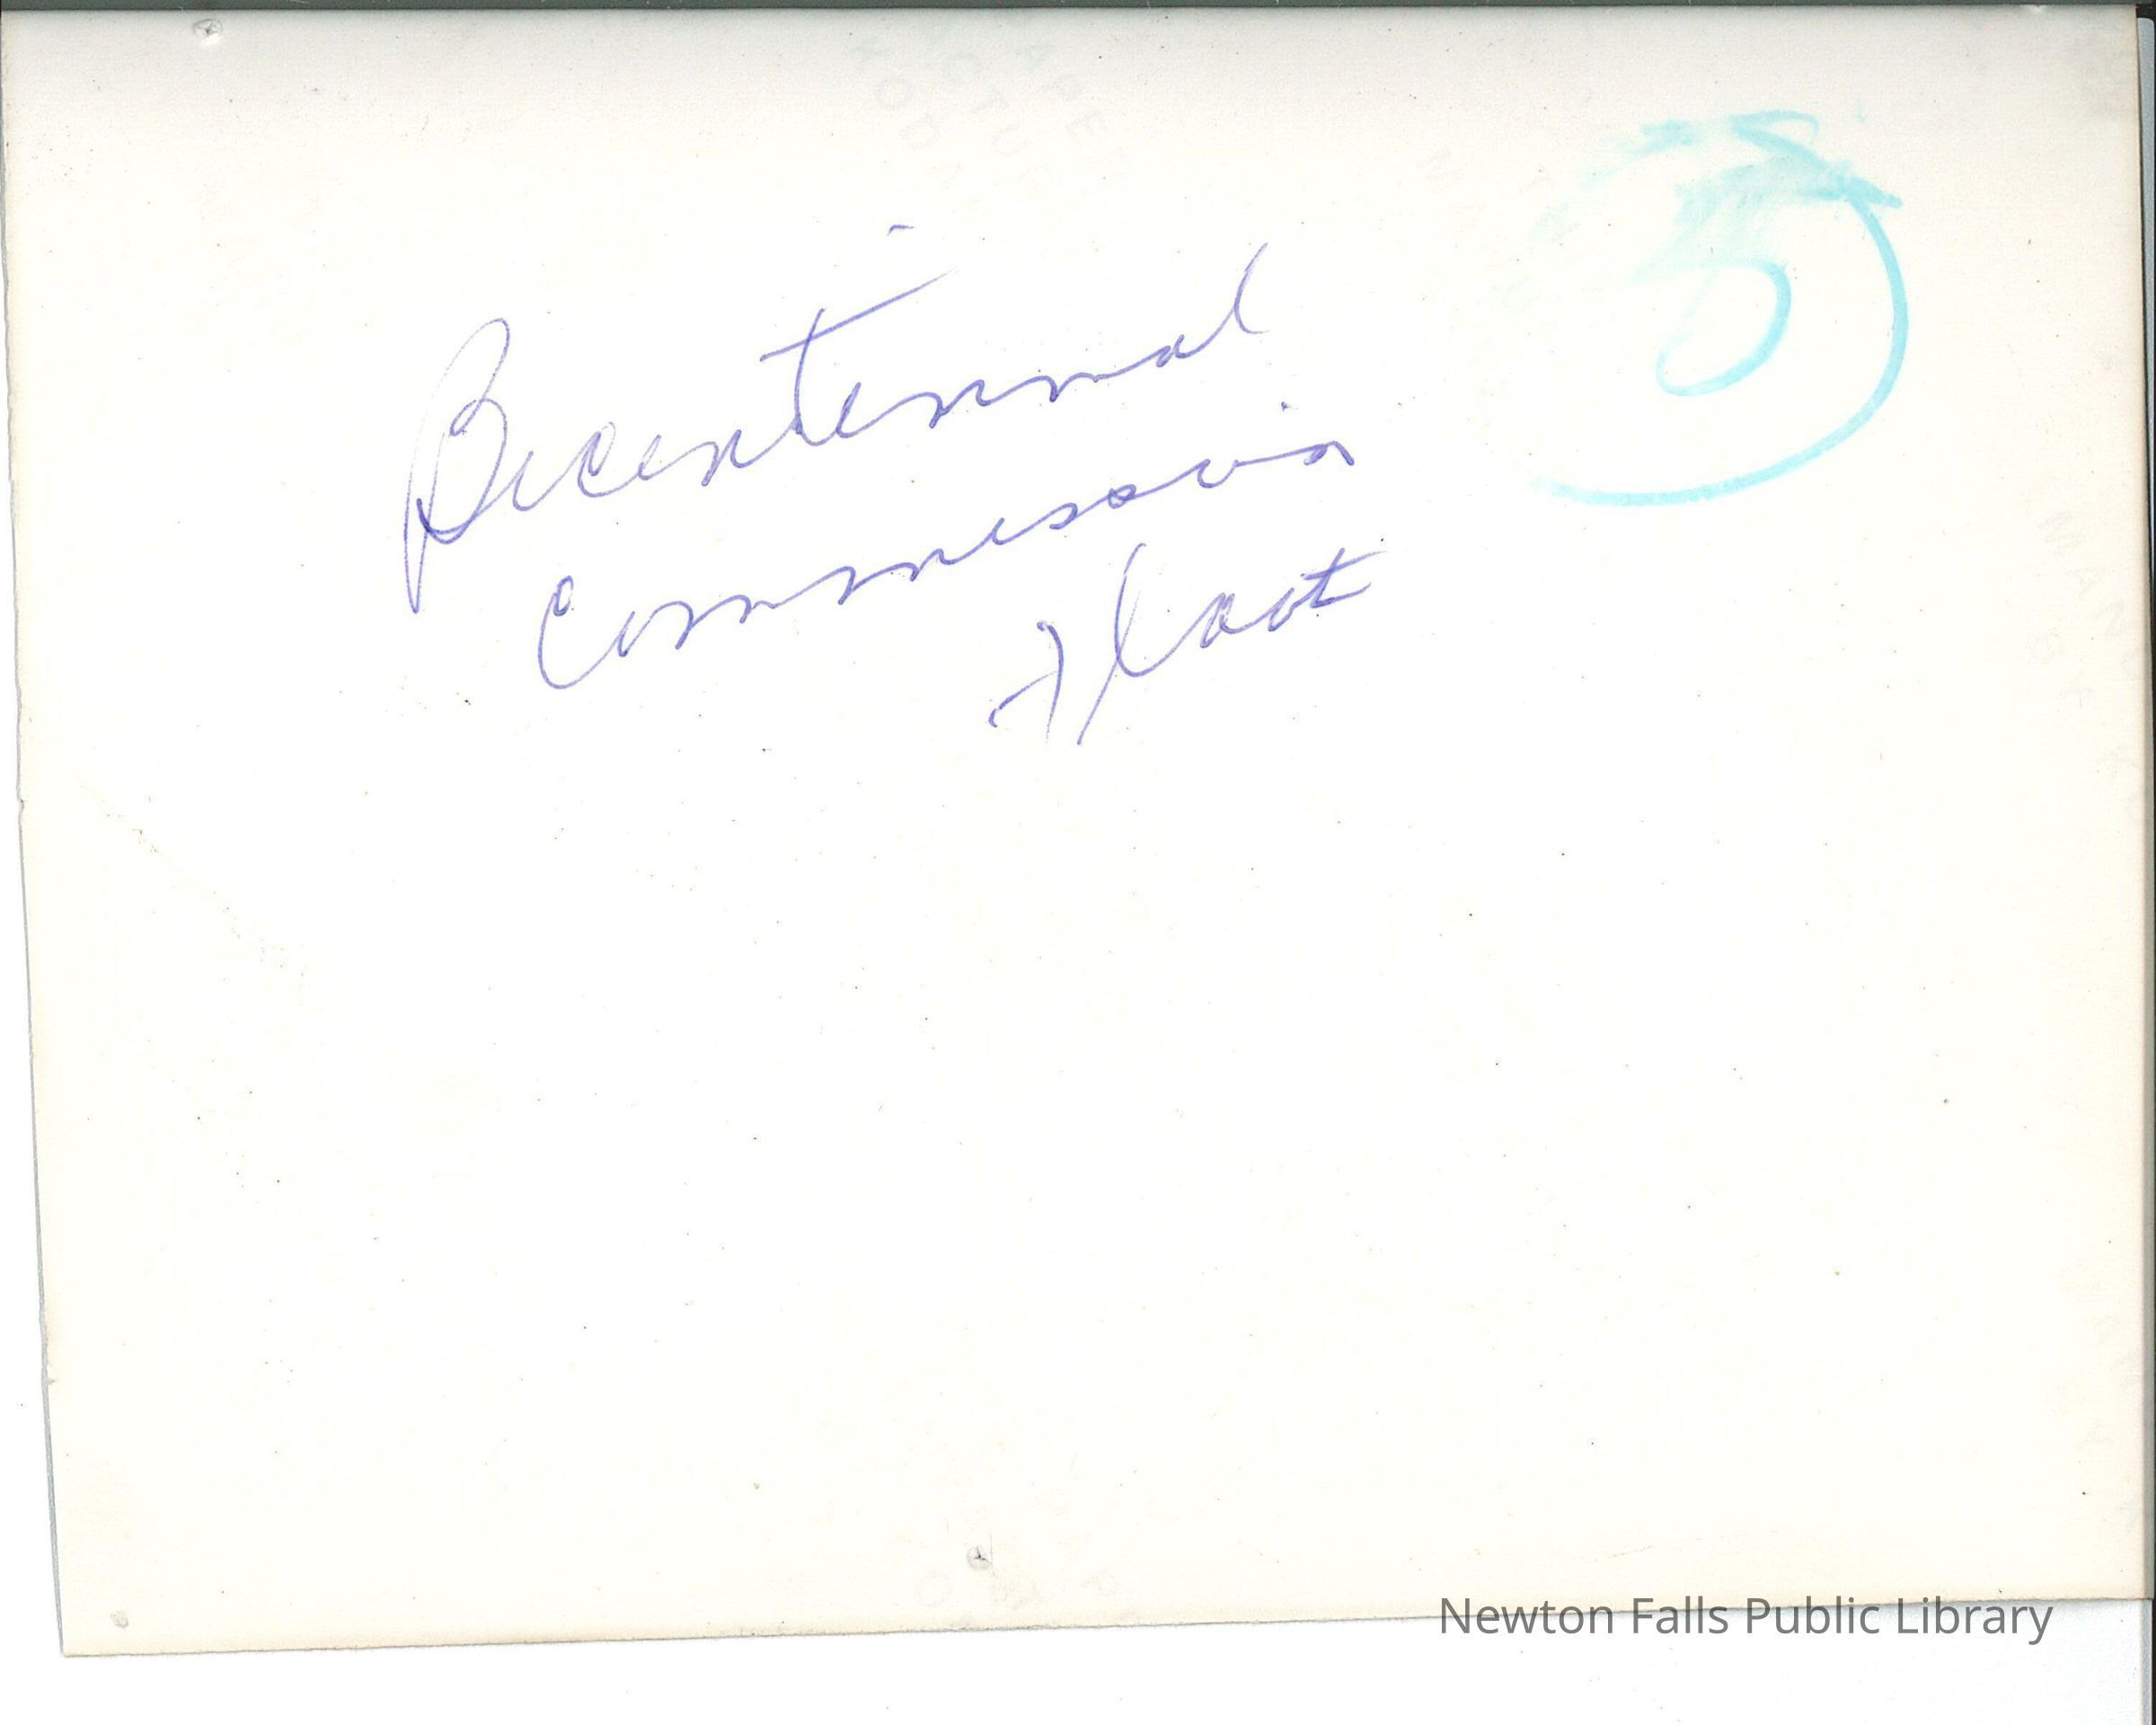 Bicentennial
Commission
float
5
Newton Falls Public Library